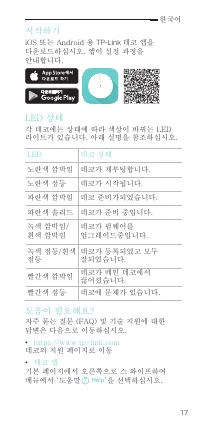 한국어
시작하기
iOS 또는 Android 용 TP-Link 데코 앱을
다운로드하십시오. 앱이 설정 과정을
안내합니다.
App Store에서
다운로드 하기
다운로드하기
Google Play
LED 상태
각 데코에는 상태에 따라 색상이 바뀌는 LED
라이트가 있습니다. 아래 설명을 참조하십시오.
LED 데코 상태
노란색 깜박임 데코가 재부팅합니다.
노란색 점등 데코가 시작됩니다.
파란색 깜박임 데코 준비가되었습니다.
파란색 솔리드 데코가 준비 중입니다.
녹색 깜박임/ 데코가 펌웨어를
흰색 깜박임 업그레이드중입니다.
녹색 점등/흰색 데코가 등록되었고 모두
점등 잘되었습니다.
빨간색 깜박임 데코가 메인 데코에서
끊어졌습니다.
빨간색 점등 데코에 문제가 있습니다.
도움이 필요해요?
자주 묻는 질문 (FAQ) 및 기술 지원에 대한
답변은 다음으로 이동하십시오.
• https://www.tp-link.com
데코의 지원 페이지로 이동
• 데코 앱
기본 페이지에서 오른쪽으로 스 와이프하여
메뉴에서 '도움말 ? Help'을 선택하십시오.
17